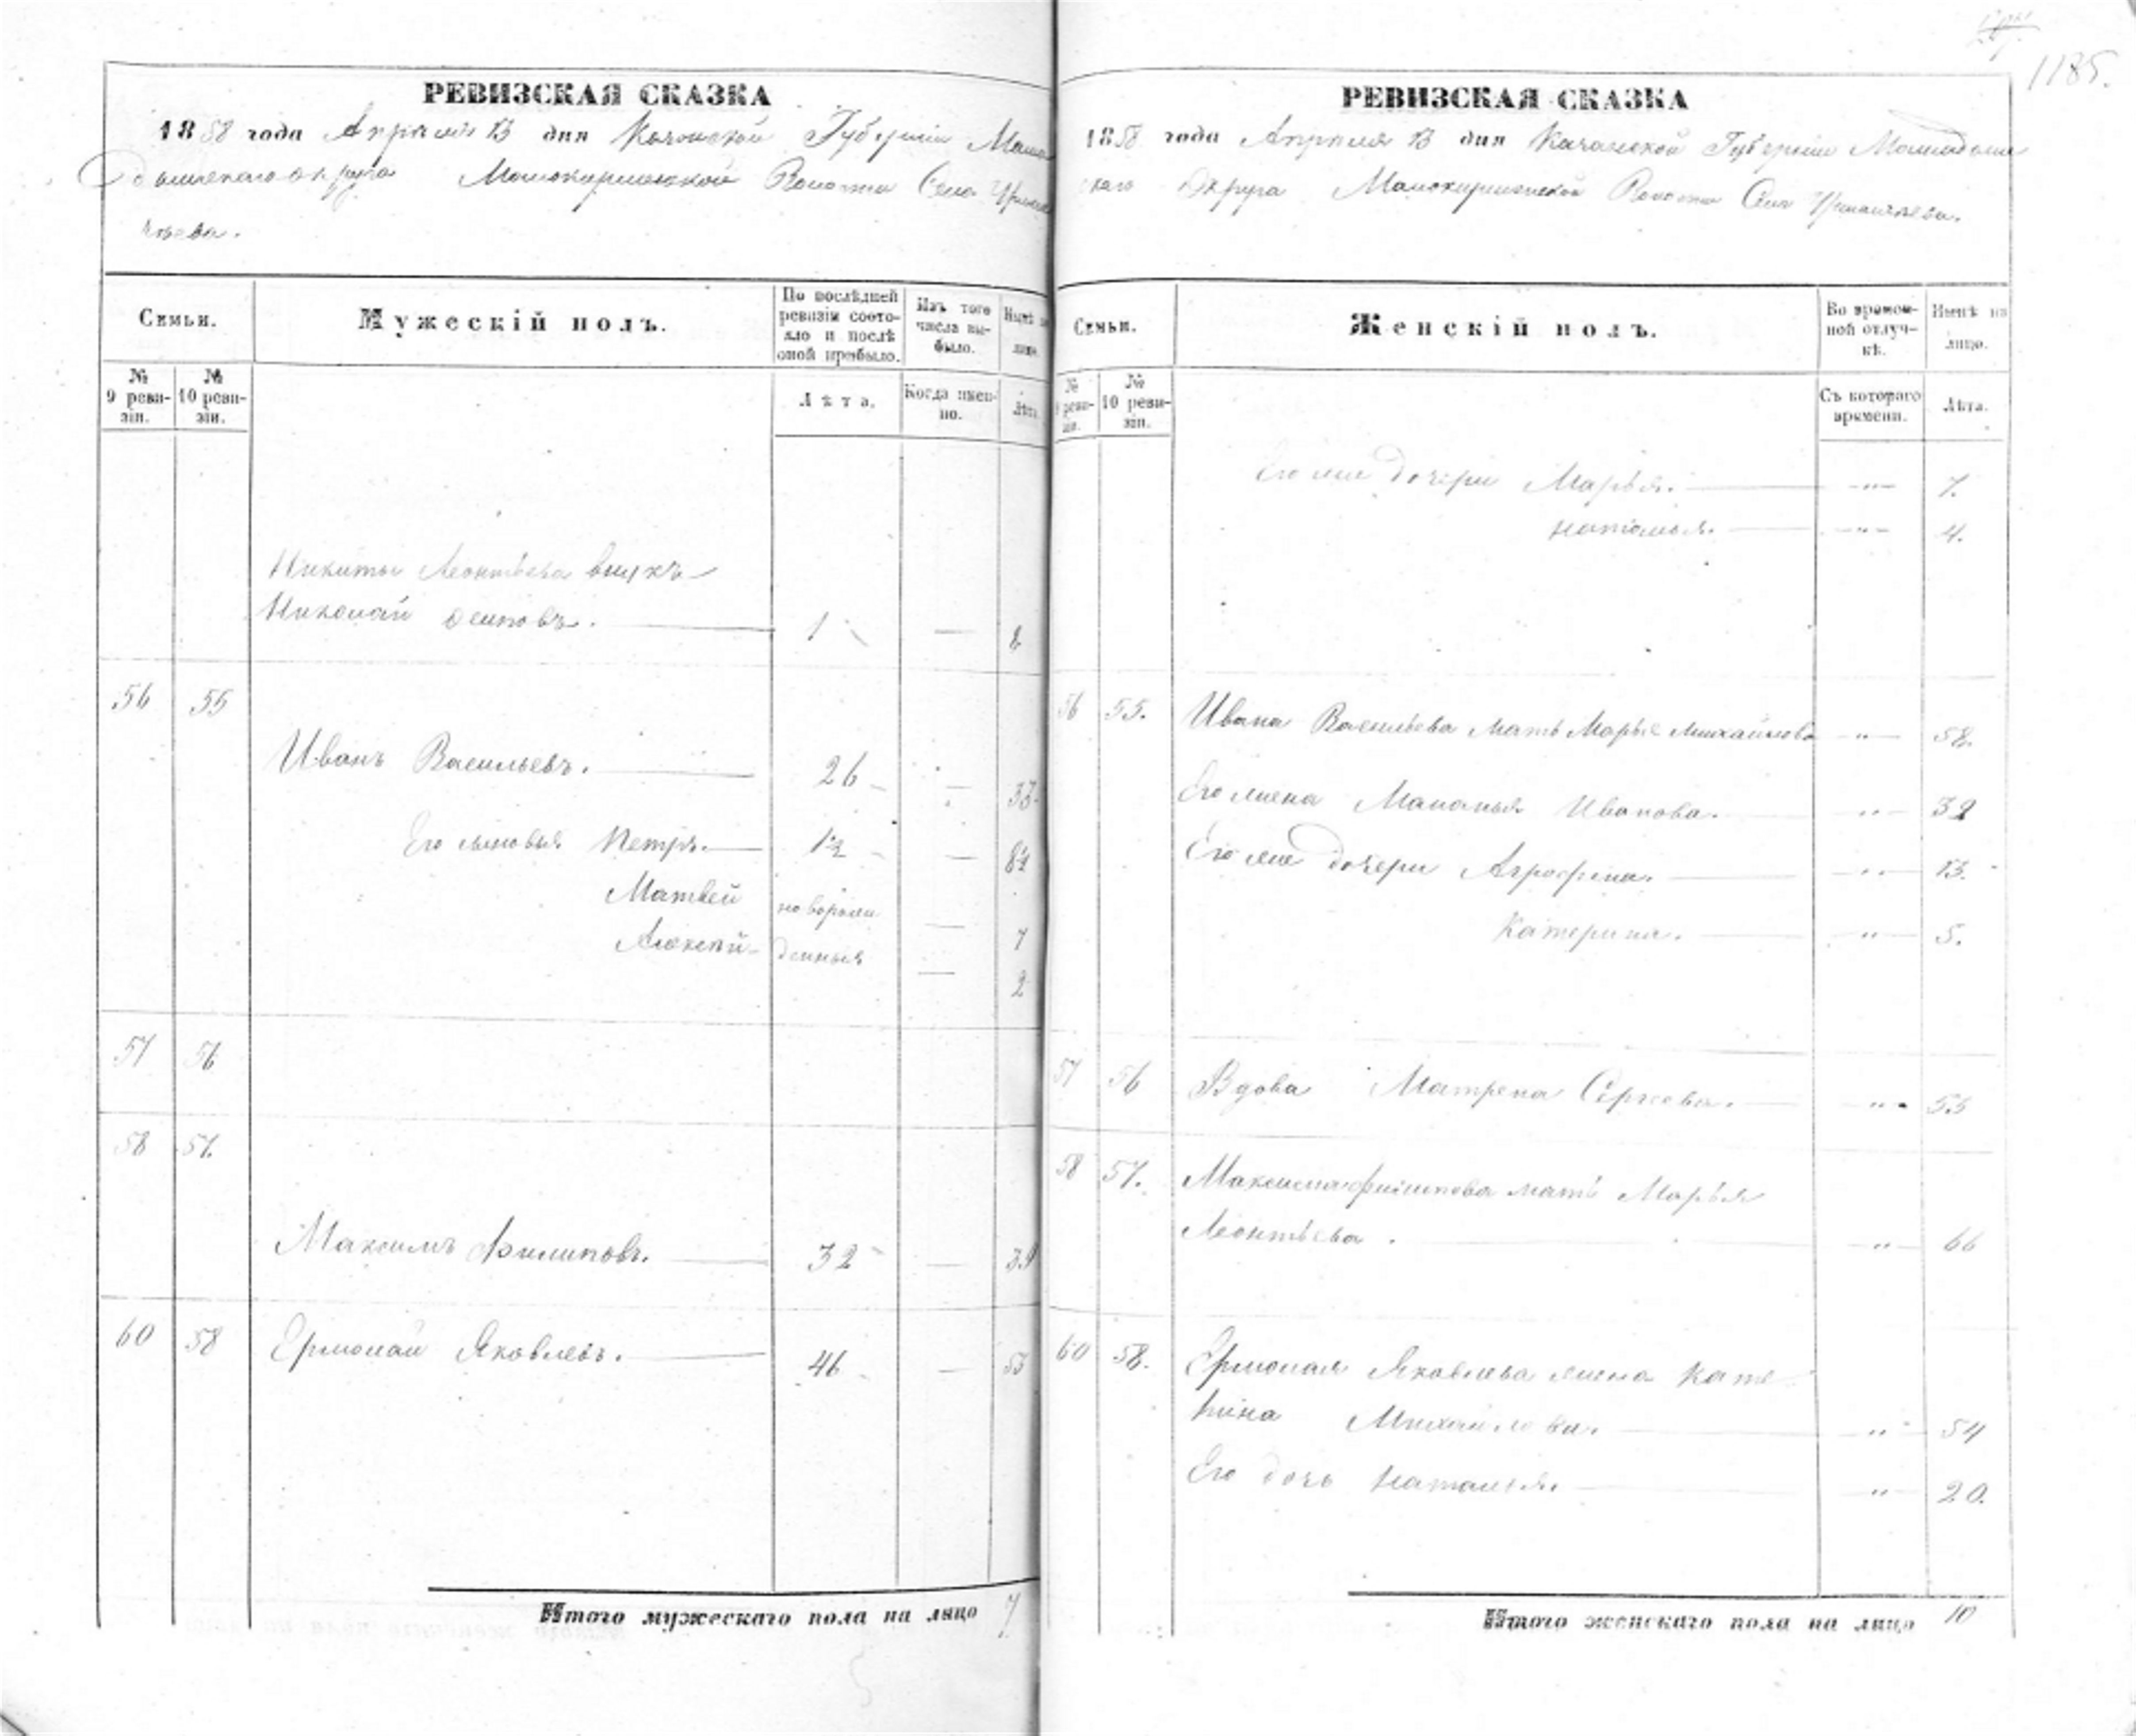 1185.
РЕВИЗСКАЯ СКАЗКА
1858 года Апреля 13 дня Казанской Губерніи Мама
дышскаго округа Мамокирменской Волости Села
чьева.
Семьи.
Мужескій полъ.
По послѣдней ревизіи состояло и послѣ оной прибыло.
Изъ того числа выбыло.
Нынѣ на лицо.
№ 9 ревизіи.
№ 10 ревизіи.
Лѣта.
Когда именно.
Лѣта.
Никиты Леонтьева внукъ
Николай Осиповъ. 1 — 8
56 55
Иванъ Васильевъ. 26 — 33
Его сыновья Петръ. 1½ — 8½
Матвей новорож — 7
Алексѣй денныя — 2
57 56
58 57.
Максимъ Филиповъ. 32 — 39
60 58 Ермолай Яковлевъ. 46 — 53
Итого мужескаго пола на лицо 7
РЕВИЗСКАЯ СКАЗКА
1858 года Апреля 13 дня Казанской Губерніи Мамадыш
скаго Округа Мамокирменской Волости Села
Семьи.
Женскій полъ.
Во временной отлучкѣ.
Нынѣ на лицо.
№ 9 ревизіи.
№ 10 ревизіи.
Съ котораго времени.
Лѣта.
Его же дочери Марья. — " — 7.
Наталья. — " — 4.
56 55. Ивана Васильева мать Марья Михайлова — " — 58.
Его жена Маланья Иванова. " — 32
Его же дочери Агрофена. — " — 13.
Катерина. — " — 5.
57 56 Вдова Матрена Сергеева. — " — 55
58 57. Максима Филипова мать Марья
Леонтьева. — " — 66
60 58. Ермолая Яковлева жена Кате
рина Михайлова. — " — 54
Его дочь Наталья. — " — 20.
Итого женскаго пола на лицо 10